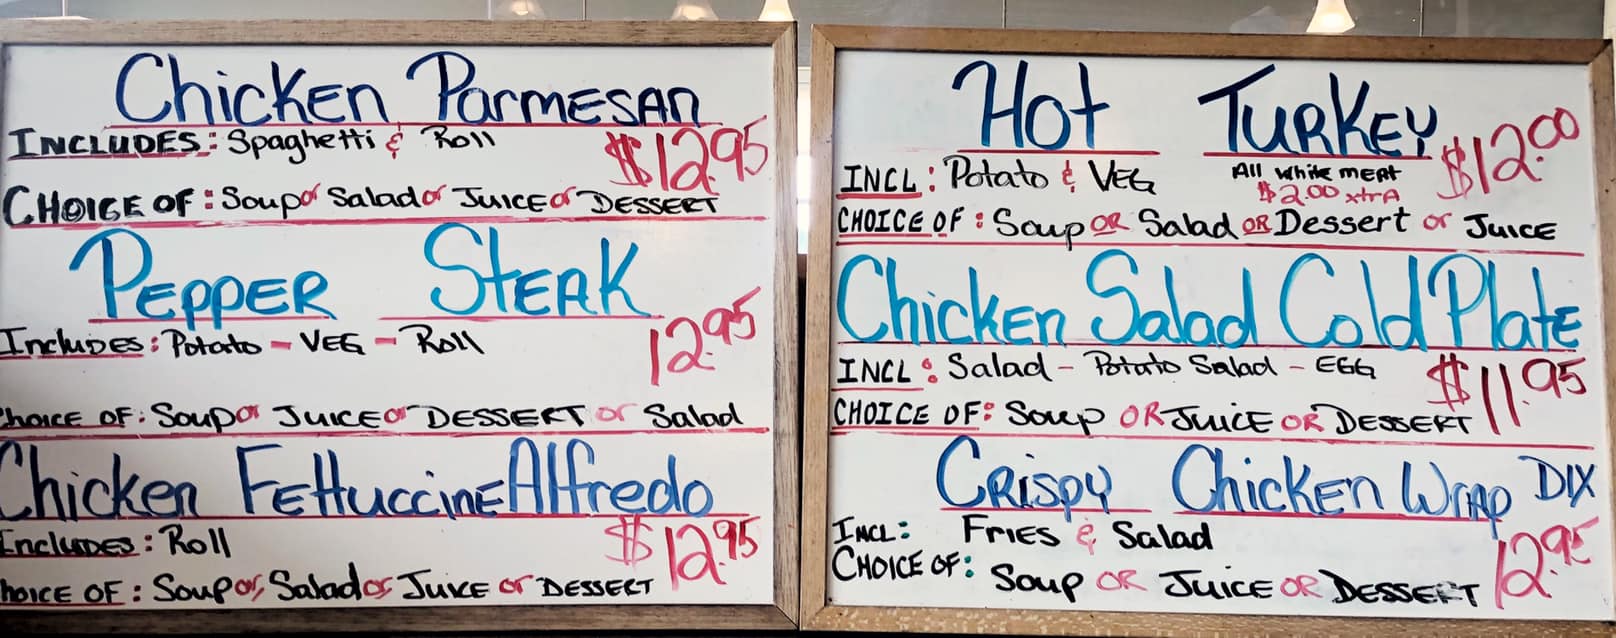 Chicken Parmesan
Includes: Spaghetti & Roll
$12.95
Choice of: Soup or Salad or Juice or Dessert
Pepper Steak
Includes: Potato - Veg - Roll
12.95
Choice of: Soup or Juice or Dessert or Salad
Chicken Fettuccine Alfredo
Includes: Roll
$12.95
Choice of: Soup or, Salad or, Juice or Dessert
Hot Turkey
$12.00
Incl: Potato & Veg
All white meat
$2.00 xtra
Choice of: Soup or Salad or Dessert or Juice
Chicken Salad Cold Plate
Incl: Salad - Potato Salad - Egg
$11.95
Choice of: Soup or Juice or Dessert
Crispy Chicken Wrap DIX
Incl: Fries & Salad
12.95
Choice of: Soup or Juice or Dessert